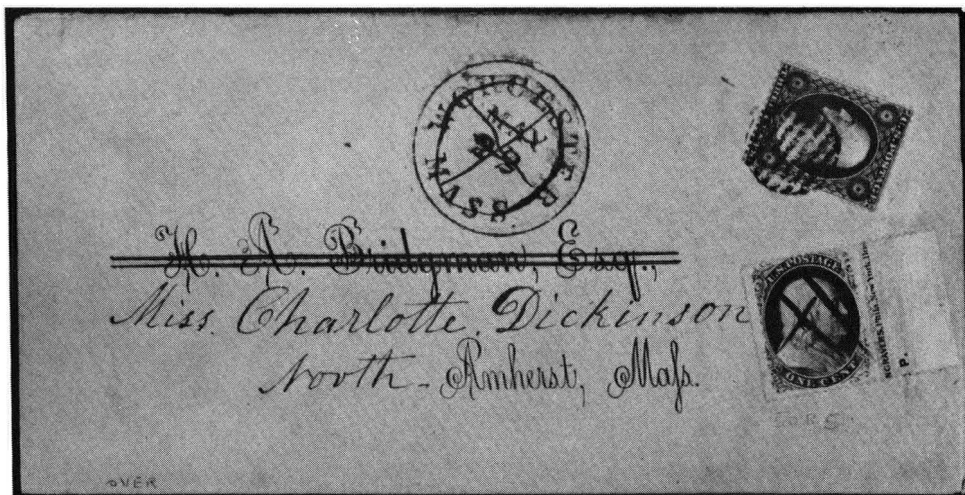 WORCESTER MASS
MAY
H. A. Bridgman, Esq.,
Miss. Charlotte. Dickinson
North - Amherst, Maſs.
U.S. POSTAGE
ONE CENT
P.
OVER